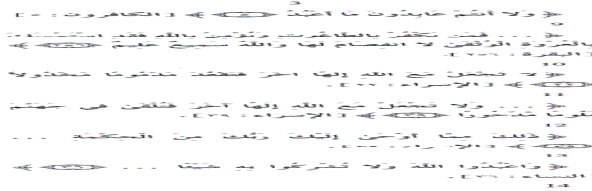 3
﴿ وَلَا أَنتُمْ عَابِدُونَ مَا أَعْبُدُ ﴾ [ الكافرون : ٥ ]
9
﴿ ... فَمَن يَكْفُرْ بِالطَّاغُوتِ وَيُؤْمِن بِاللَّهِ فَقَدِ اسْتَمْسَكَ
بِالْعُرْوَةِ الْوُثْقَىٰ لَا انفِصَامَ لَهَا وَاللَّهُ سَمِيعٌ عَلِيمٌ ﴾
[ البقرة : ٢٥٦ ].
10
﴿ لَا تَجْعَلْ مَعَ اللَّهِ إِلَٰهًا آخَرَ فَتَقْعُدَ مَذْمُومًا مَّخْذُولًا
﴾ [ الإسراء : ٢٢ ].
11
﴿ ... وَلَا تَجْعَلْ مَعَ اللَّهِ إِلَٰهًا آخَرَ فَتُلْقَىٰ فِي جَهَنَّمَ
مَلُومًا مَّدْحُورًا ﴾ [ الإسراء : ٣٩ ].
12
﴿ ذَٰلِكَ مِمَّا أَوْحَىٰ إِلَيْكَ رَبُّكَ مِنَ الْحِكْمَةِ ...
﴾
13
﴿ وَاعْبُدُوا اللَّهَ وَلَا تُشْرِكُوا بِهِ شَيْئًا ... ﴾
[ النساء : ٣٦ ].
14